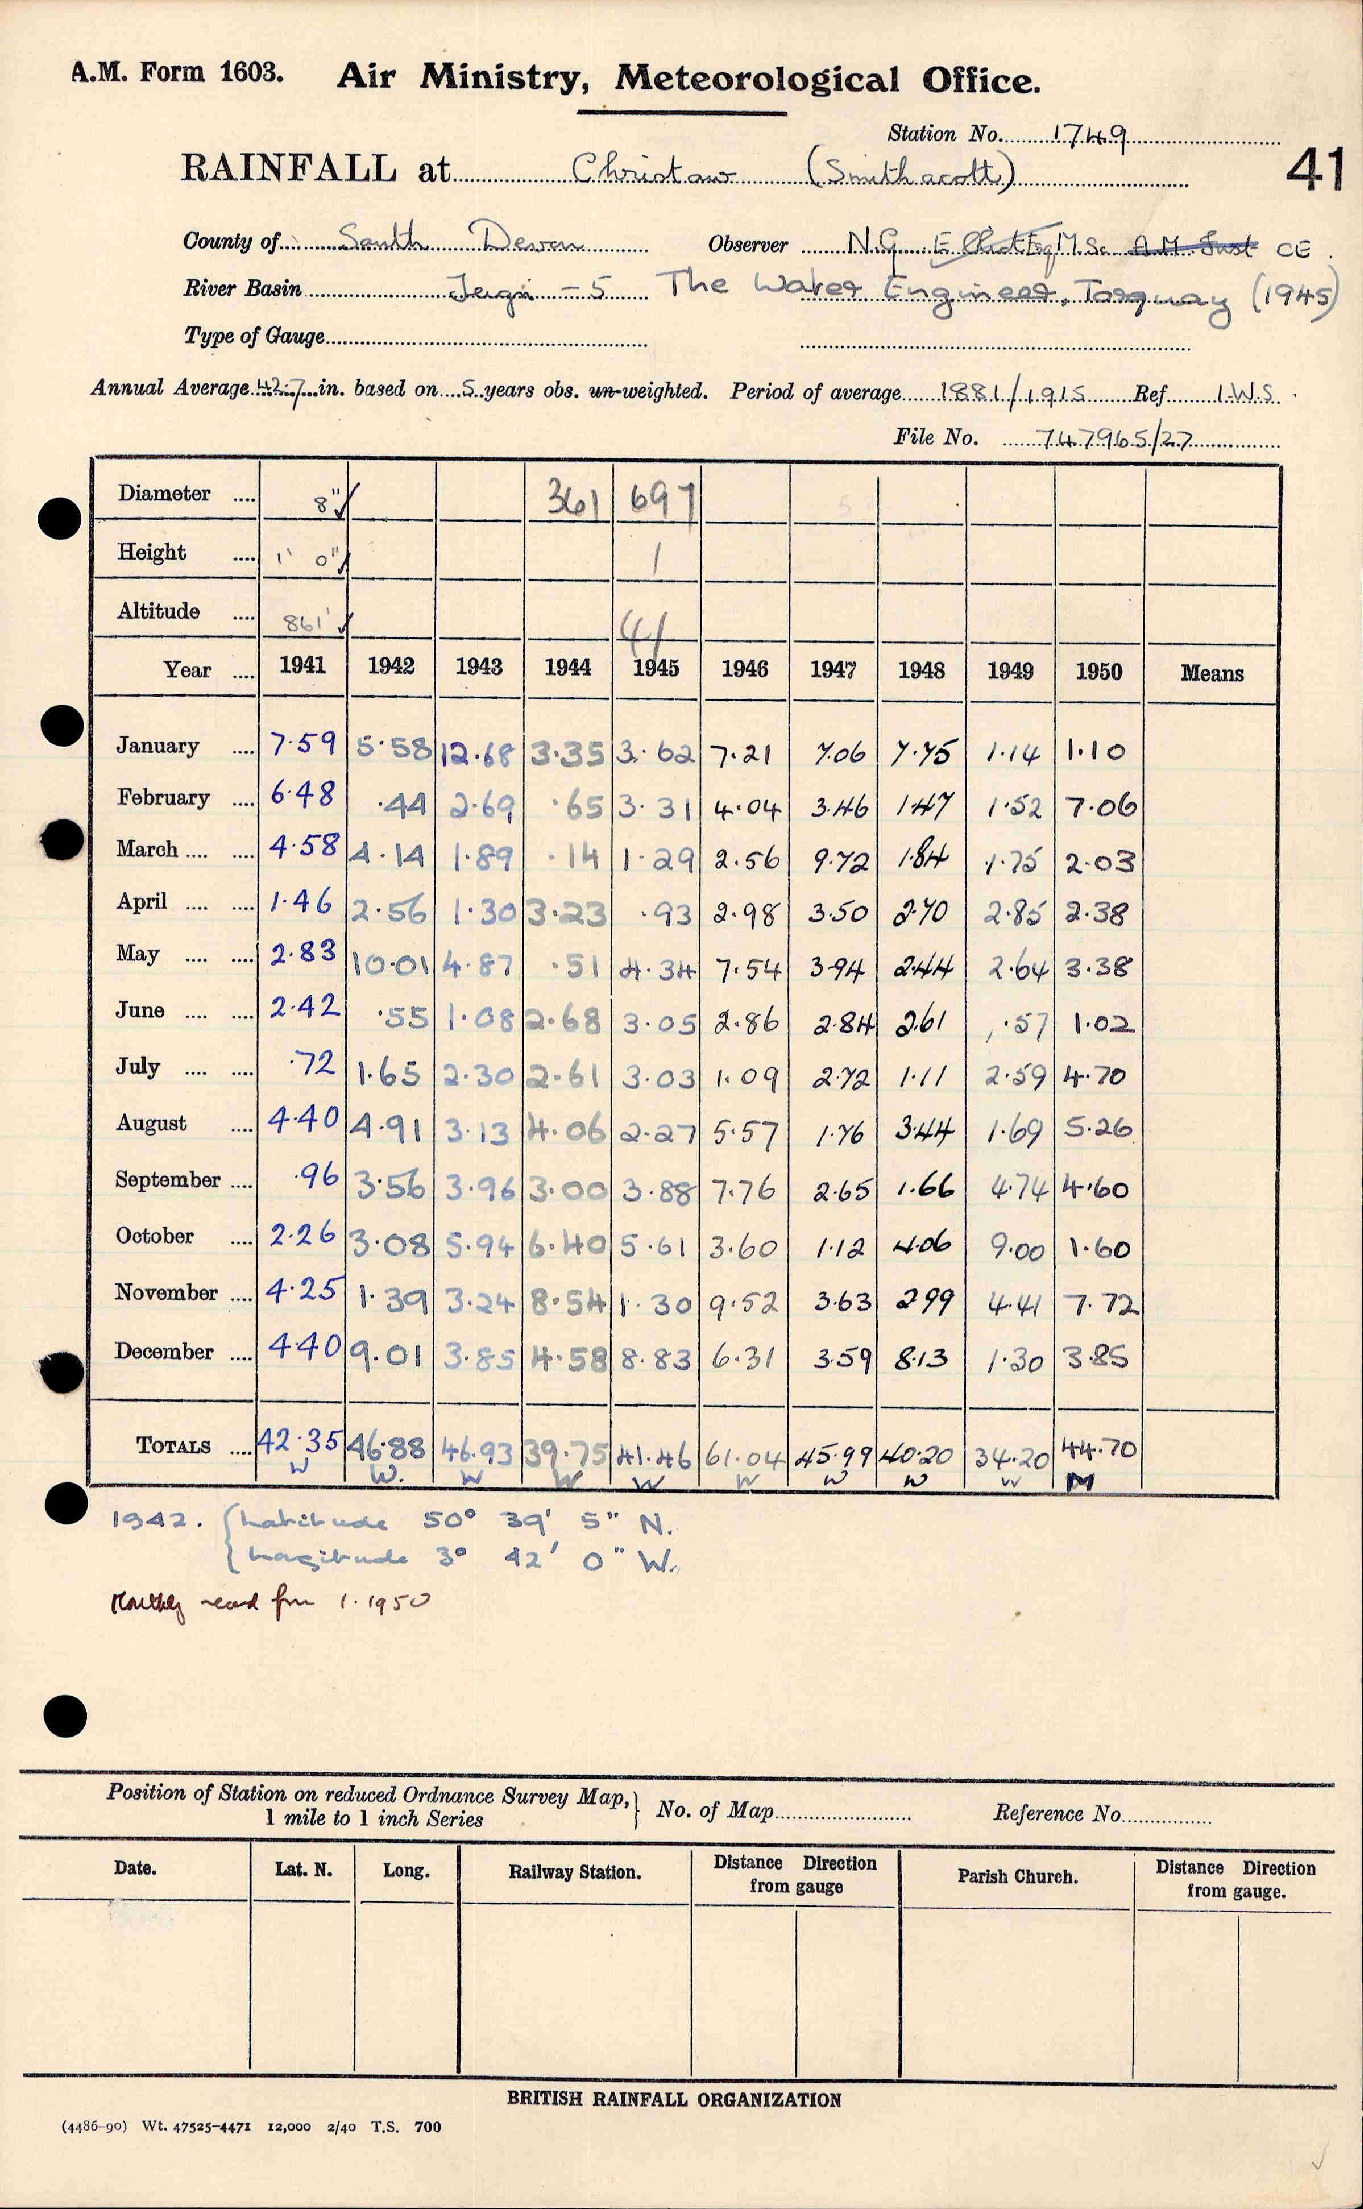 A.M. Form 1603. Air Ministry, Meteorological Office.
Station No. 1749
41
RAINFALL at Christow (Smithacott)
County of South Devon Observer N.G. Elliot Esq M.Sc. A.M. Inst CE.
River Basin Teign - 5 The Water Engineer, Torquay (1945)
Type of Gauge
Annual Average 42.7 in. based on 5 years obs. un-weighted. Period of average 1881/1915 Ref I.W.S.
File No. 747965/27
Diameter .... 8" 361 697
Height .... 1' 0" 1
Altitude .... 861' 41
Year .... 1941 1942 1943 1944 1945 1946 1947 1948 1949 1950 Means
January .... 7.59 5.58 12.68 3.35 3.62 7.21 7.06 7.75 1.14 1.10
February .... 6.48 .44 2.69 .65 3.31 4.04 3.46 1.47 1.52 7.06
March .... .... 4.58 4.14 1.89 .14 1.29 2.56 9.72 1.84 1.75 2.03
April .... .... 1.46 2.56 1.30 3.23 .93 2.98 3.50 2.70 2.85 2.38
May .... .... 2.83 10.01 4.87 .51 4.34 7.54 3.94 2.44 2.64 3.38
June .... .... 2.42 .55 1.08 2.68 3.05 2.86 2.84 2.61 .57 1.02
July .... .... .72 1.65 2.30 2.61 3.03 1.09 2.72 1.11 2.59 4.70
August .... 4.40 4.91 3.13 4.06 2.27 5.57 1.76 3.44 1.69 5.26
September .... .96 3.56 3.96 3.00 3.88 7.76 2.65 1.66 4.74 4.60
October .... 2.26 3.08 5.94 6.40 5.61 3.60 1.12 4.06 9.00 1.60
November .... 4.25 1.39 3.24 8.54 1.30 9.52 3.63 2.99 4.41 7.72
December .... 4.40 9.01 3.85 4.58 8.83 6.31 3.59 8.13 1.30 3.85
TOTALS .... 42.35 46.88 46.93 39.75 41.46 61.04 45.99 40.20 34.20 44.70
W W. W W W W W W W M
1942. { Latitude 50° 39' 5" N.
{ Longitude 3° 42' 0" W.
Monthly read from 1.1950
Position of Station on reduced Ordnance Survey Map, } No. of Map Reference No.
1 mile to 1 inch Series
Date. Lat. N. Long. Railway Station. Distance Direction from gauge Parish Church. Distance Direction from gauge.
BRITISH RAINFALL ORGANIZATION
(4486-90) Wt. 47525-4471 12,000 2/40 T.S. 700